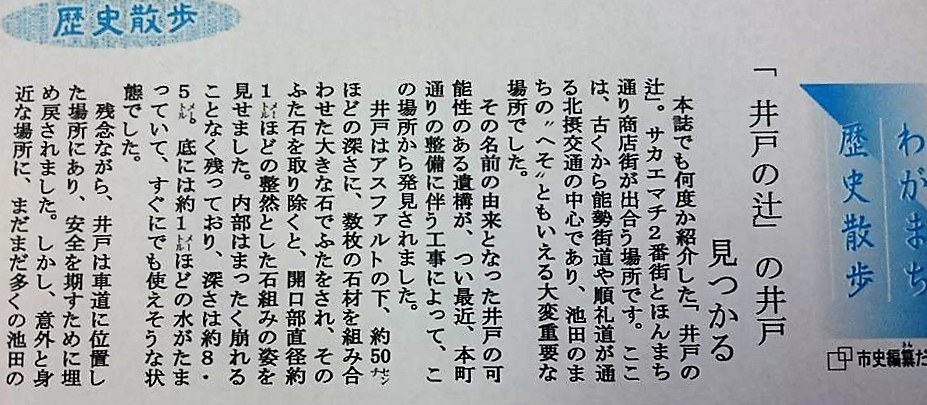 歴史散歩
わがまち
歴史散歩
「井戸の辻」の井戸
見つかる
市史編纂だ
さん
本誌でも何度か紹介した「井戸の
辻」。サカエマチ2番街とほんまち
通り商店街が出合う場所です。ここ
は、古くから能勢街道や順礼道が通
る北摂交通の中心であり、池田のま
ちの〝へそ〟ともいえる大変重要な
場所でした。
その名前の由来となった井戸の可
能性のある遺構が、つい最近、本町
通りの整備に伴う工事によって、こ
の場所から発見されました。
井戸はアスファルトの下、約50センチ
ほどの深さに、数枚の石材を組み合
わせた大きな石でふたをされ、その
ふた石を取り除くと、開口部直径約
1メートルほどの整然とした石組みの姿を
見せました。内部はまったく崩れる
ことなく残っており、深さは約8・
5メートル、底には約1メートルほどの水がたま
っていて、すぐにでも使えそうな状
態でした。
残念ながら、井戸は車道に位置し
た場所にあり、安全を期すために埋
め戻されました。しかし、意外と身
近な場所に、まだまだ多くの池田の